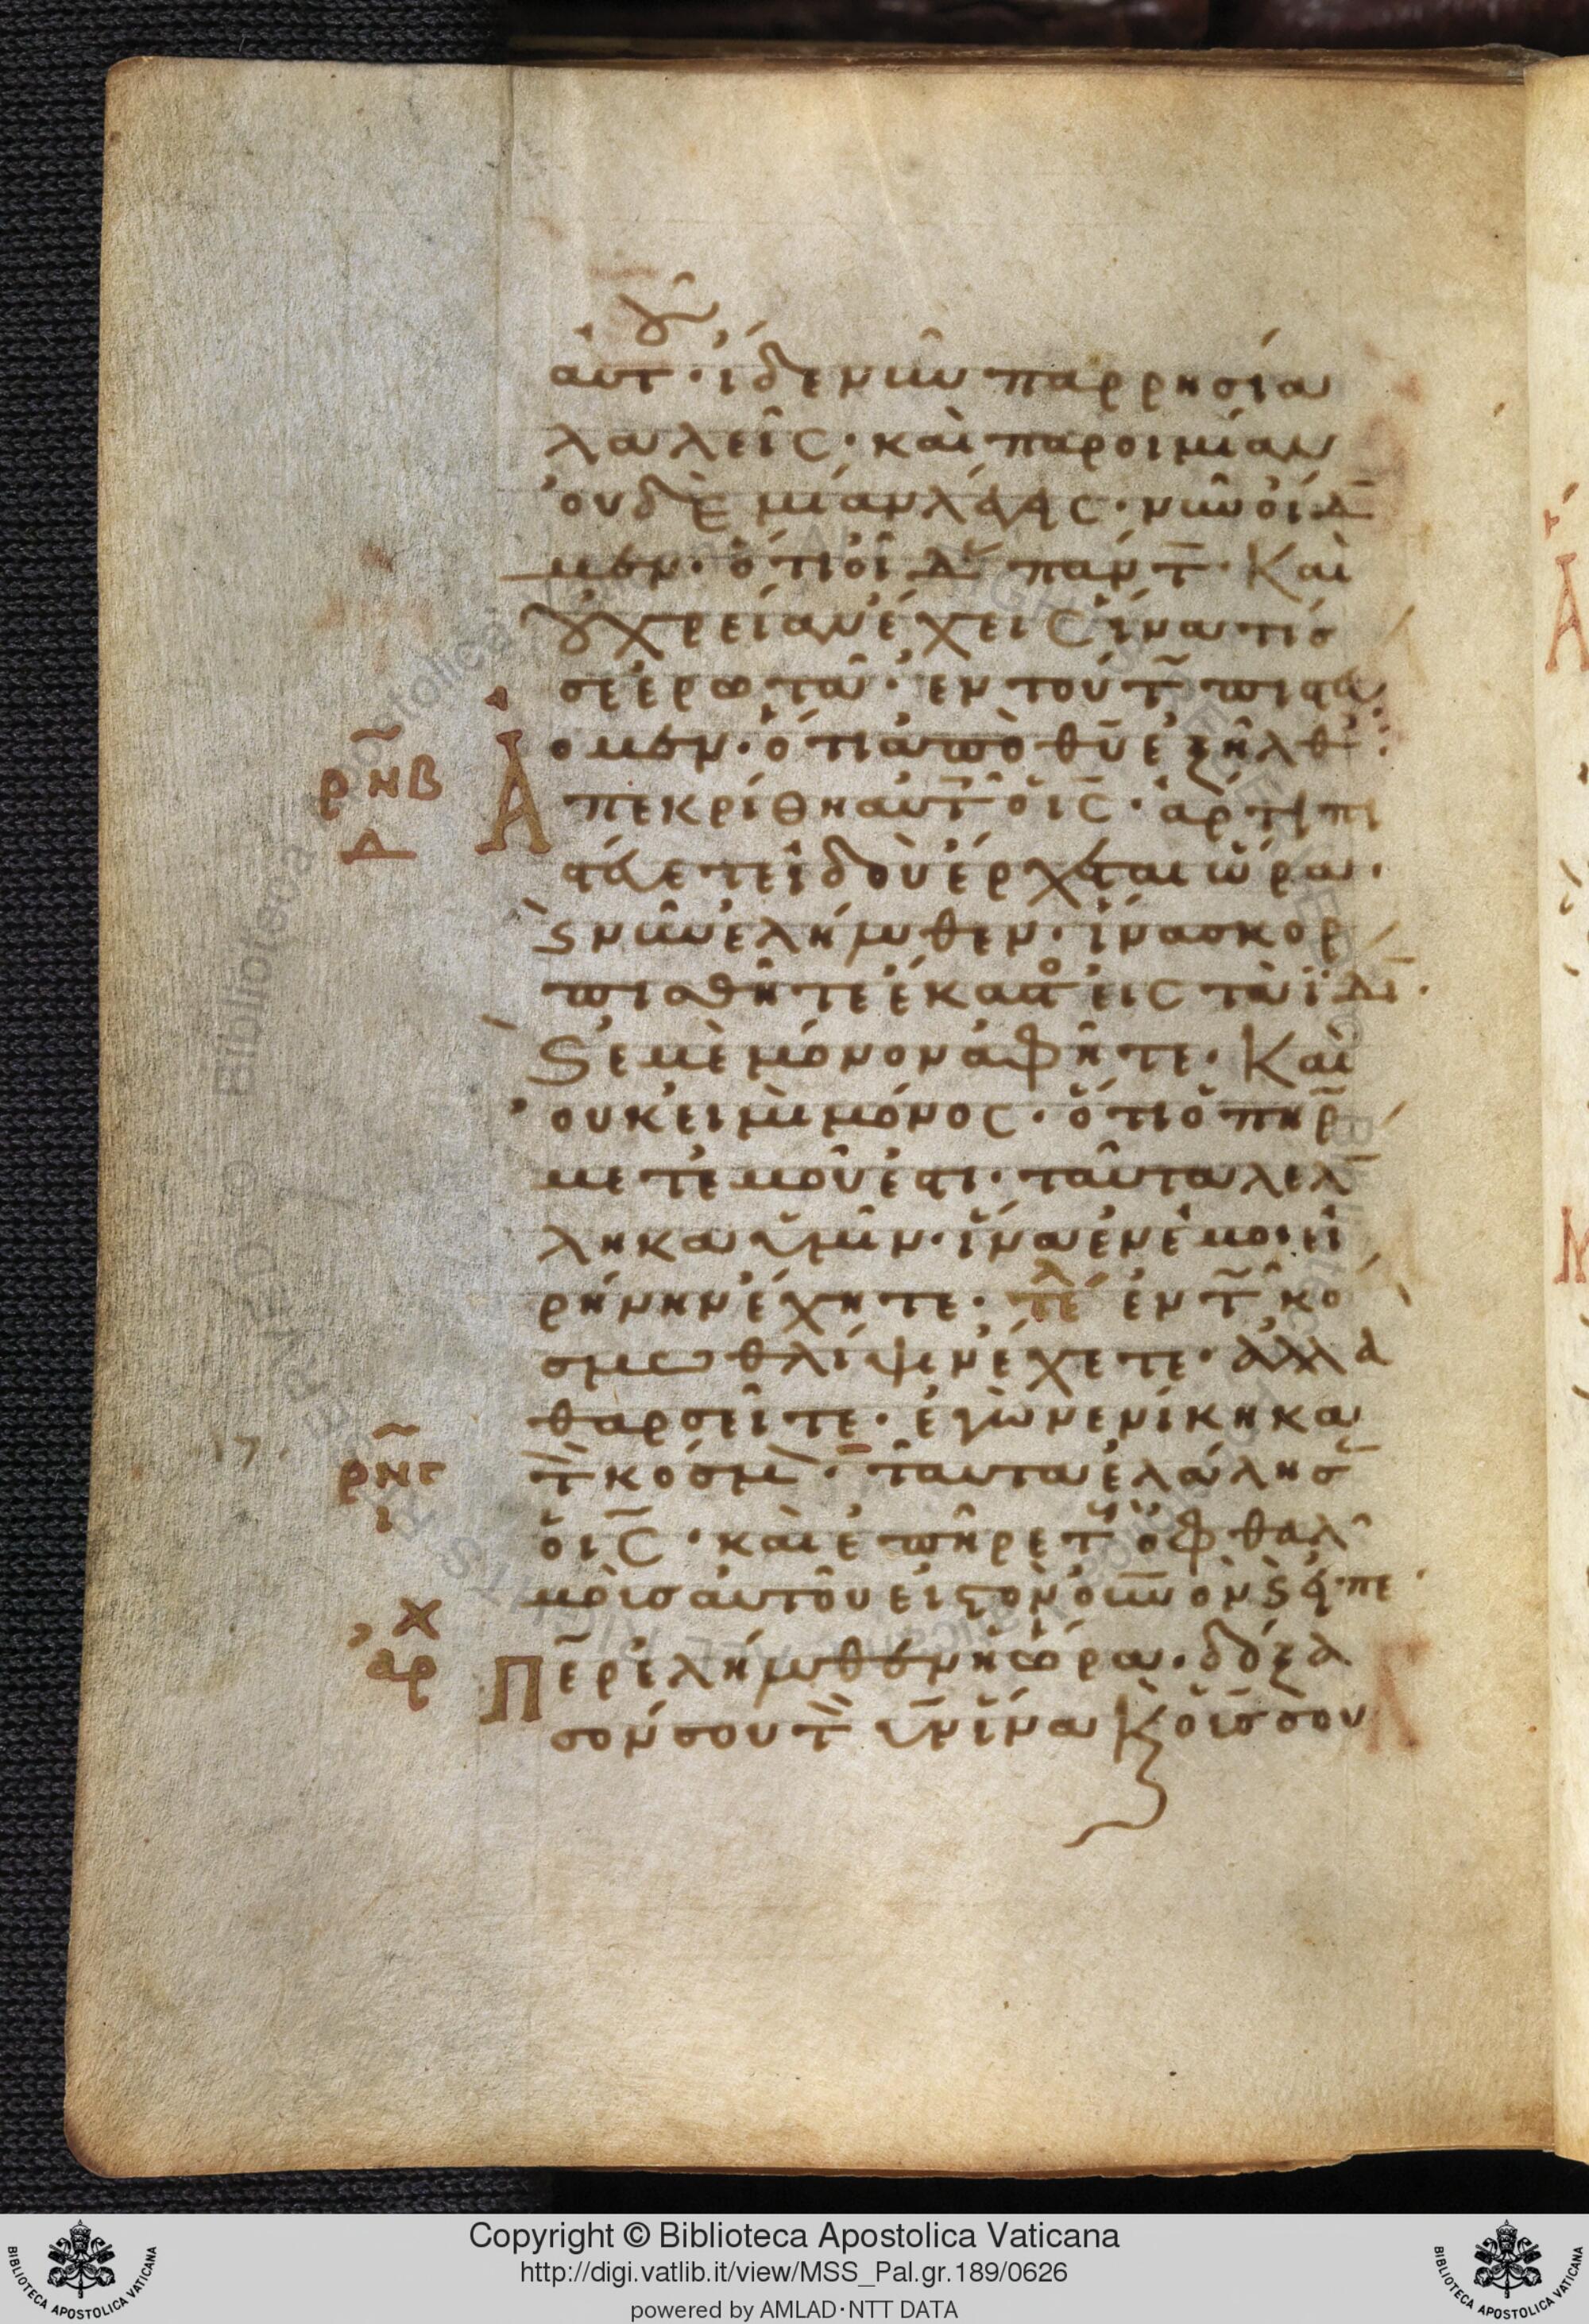 αὐτοῦ· ἴδε νῦν παρρησία
λαλεῖς· καὶ παροιμίαν
οὐδὲ μίαν λέγεις· νῦν οἴδα
μεν· ὅτι οἶδας πάντα· Καὶ
οὐ χρείαν ἔχεις ἵνα τίς
σε ἐρωτᾶ· ἐν τούτω πιστεύ
ομεν· ὅτι ἀπὸ θυ ἐξῆλθες·
ρνβ
δ
Ἀπεκρίθη αὐτοῖς ὁ ις· ἄρτι πι
στεύετε ἰδοὺ ἔρχεται ὥρα·
ϛ νῦν ἐλήλυθεν· ἵνα σκορ
πισθῆτε ἕκαστος εἰς τὰ ἴδια·
ϛ ἐμὲ μόνον ἀφῆτε· Καὶ
οὐκ εἰμὶ μόνος· ὅτι ὁ πηρ
μετ ἐμοῦ ἐστι· ταῦτα λελά
ληκα ὑμῖν· ἵνα ἐν ἐμοὶ εἰ
ρήνην ἔχητε· τέλ ἐν τῶ κό
σμω θλίψιν ἔχετε· ἀλλὰ
θαρσεῖτε· ἐγὼ νενίκηκα
17.
ρνγ
ι
τὸν κόσμον· ταῦτα ἐλάλησεν
ὁ ις· καὶ ἐπῆρε τοὺς ὀφθαλ
μοὺς αὐτοῦ εἰς τὸν οὐνον ϛ εἶπε
χ
αρ
Περ ἐλήλυθεν ἡ ὥρα· δόξα
σόν σου τὸν υν ἵνα Κ ὁ υς σου
Copyright © Biblioteca Apostolica Vaticana
http://digi.vatlib.it/view/MSS_Pal.gr.189/0626
powered by AMLAD·NTT DATA
BIBLIOTECA APOSTOLICA VATICANA
BIBLIOTECA APOSTOLICA VATICANA